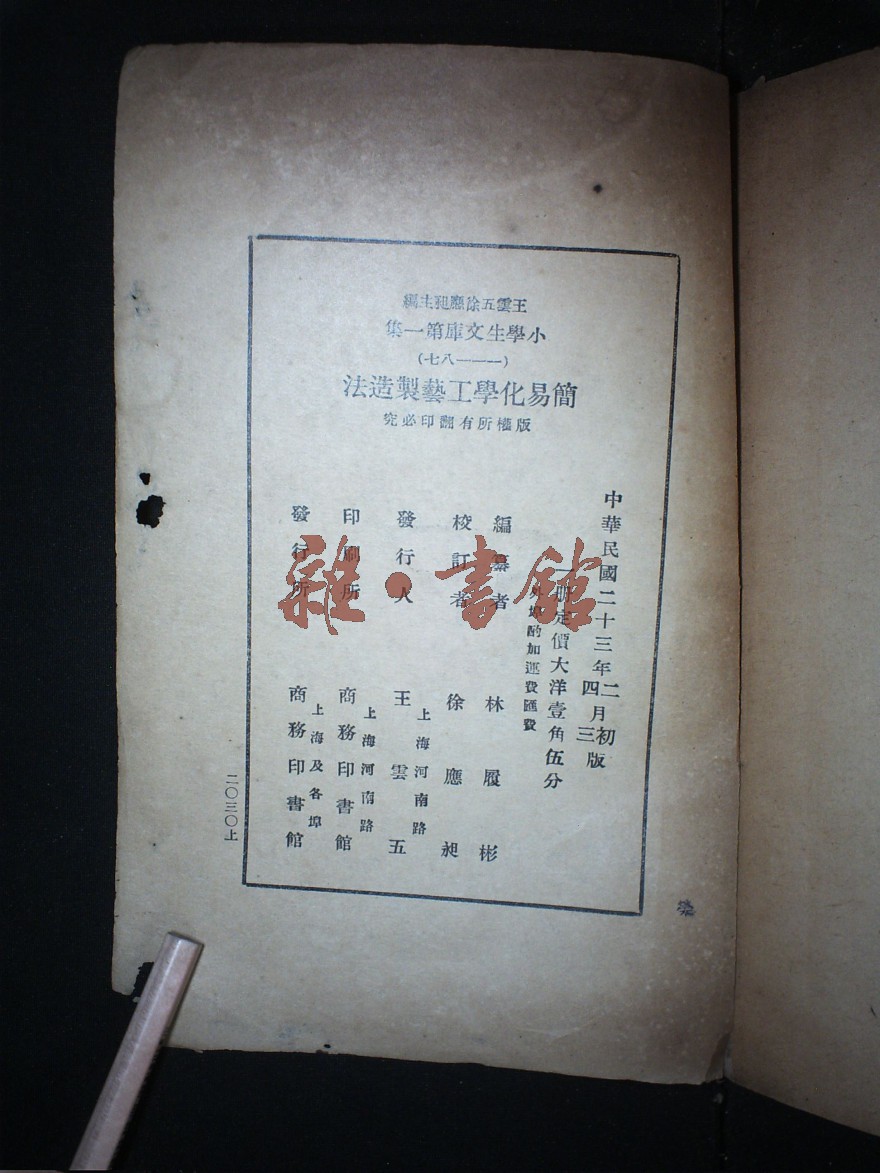 王雲五徐應昶主編
小學生文庫第一集
(一——八七)
簡易化學工藝製造法
版權所有翻印必究
中華民國二十三年二月初版
四三
一冊定價大洋壹角伍分
外埠酌加運費匯費
編纂者 林履彬
校訂者 徐應昶
上海河南路
發行人 王雲五
上海河南路
印刷所 商務印書館
上海及各埠
發行所 商務印書館
二〇三〇上
雜·書館